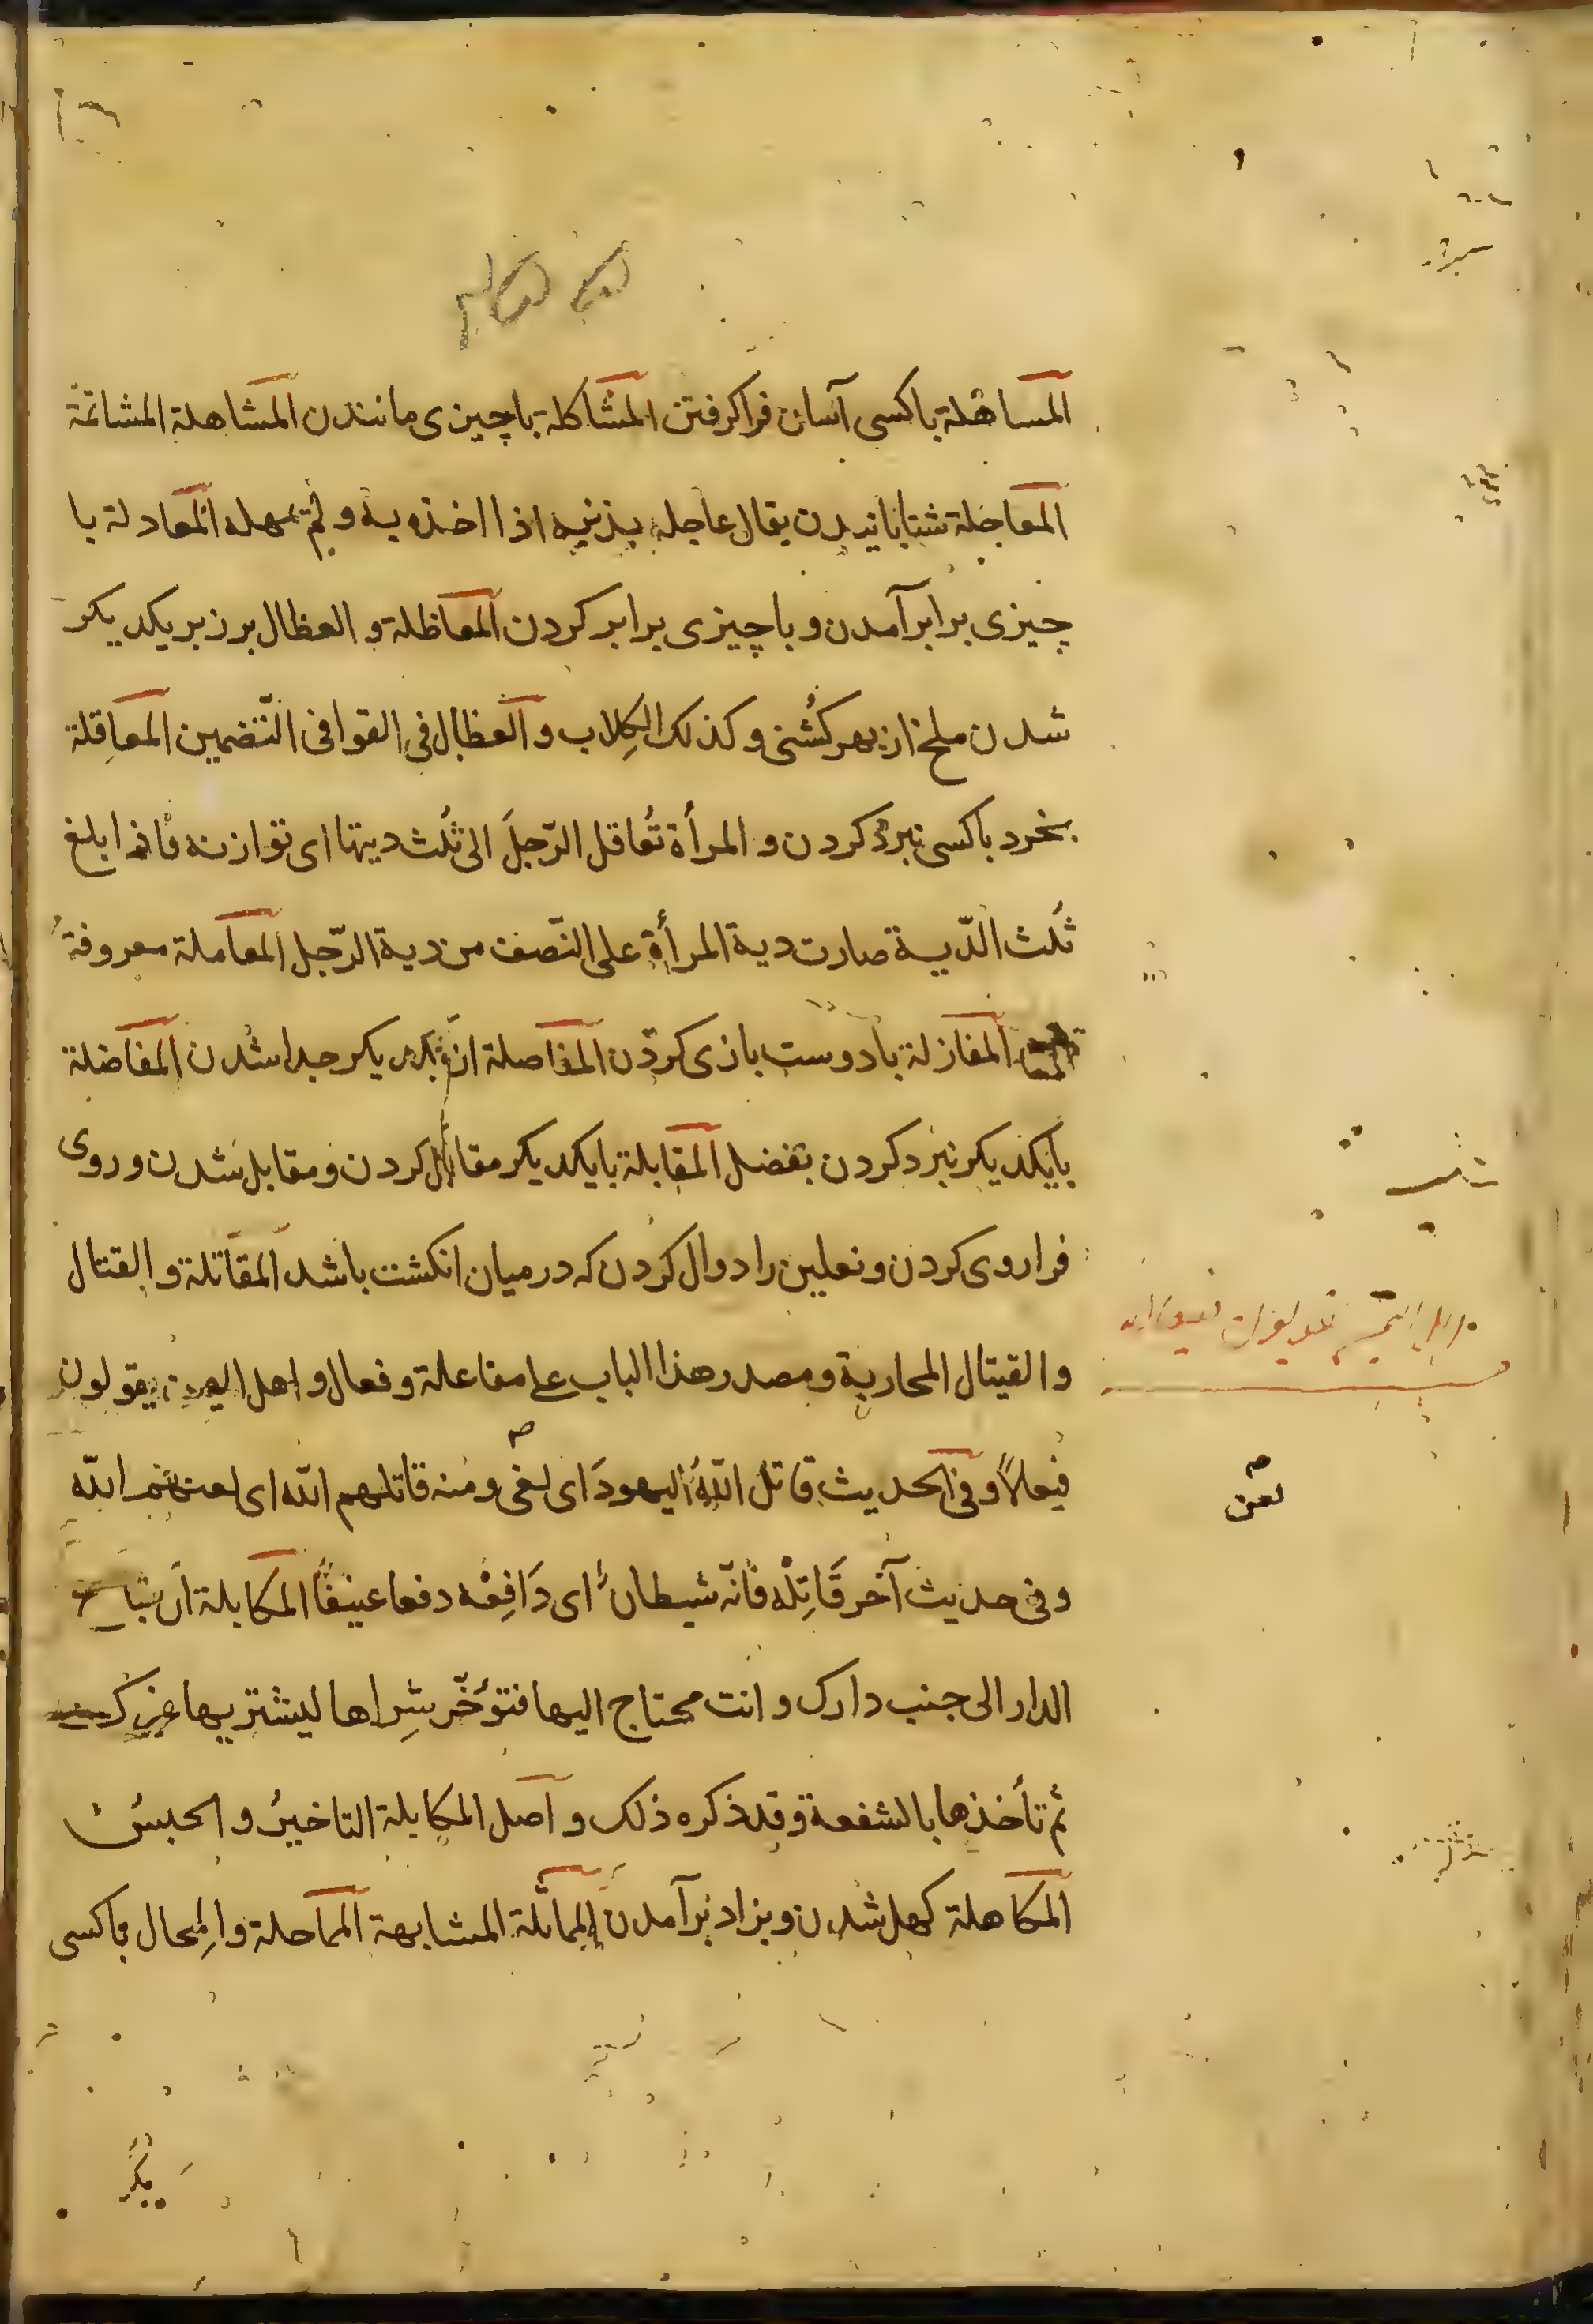 المساهلة باکسی آسان فراکرفتن المشاکلة باچیزی مانندن المشاهلة المشاتمة
المعاجلة شتابانیدن یقال عاجله بذنبه اذا اخذه به و لم یمهله المعادلة با
چیزی برابر آمدن و باچیزی برابر کردن المعاظلة و العظال بر زبر یکدیکر
شدن ملخ از بهر کُشنی و کذلک الکِلاب و العظال فی القوافی التّضمین المعاقِلة
بخرد باکسی نبرد کردن و المرأة تُعاقل الرّجلَ الی ثُلث دیتها ای توازنه فاذا بلغ
ثُلث الدّیة صارت دیة المرأة علی النّصف من دیة الرّجل المعاملة معروفةٌ
المغازلة بادوست بازی کردن المفاصلة از یکدیکر جدا شدن المفاضلة
بایکدیکر نبرد کردن بفضل المقابلة بایکدیکر مقابل کردن و مقابل شدن و روی
فراروی کردن و نعلین را دوال کردن که درمیان انکشت باشد المقاتلة و القتال
و القیتال المحاربة و مصدر هذا الباب علی مفاعلة و فعال و اهل الیمن یقولون
فیعالاً و فی الحدیث قاتل اللّهُ الیهودَ ای لغی و منه قاتلهم اللّه ای لعنهم اللّه
لعن
و فی حدیث آخر قَاتِلْه فانّه شیطانٌ ای دَافِعْه دفعا عنیفًا المکابلة ان تباع
الدار الی جنب دارک و انت محتاج الیها فتؤخّر شِراها لیشتریها غیرک
ثم تأخذها بالشفعة و قد ذکره ذلک و اصل المکابلة التاخیرُ و الحبسُ
المکاهلة کهل شدن و بزاد برآمدن المماثلة المشابهة المماحلة و المِحال باکسی